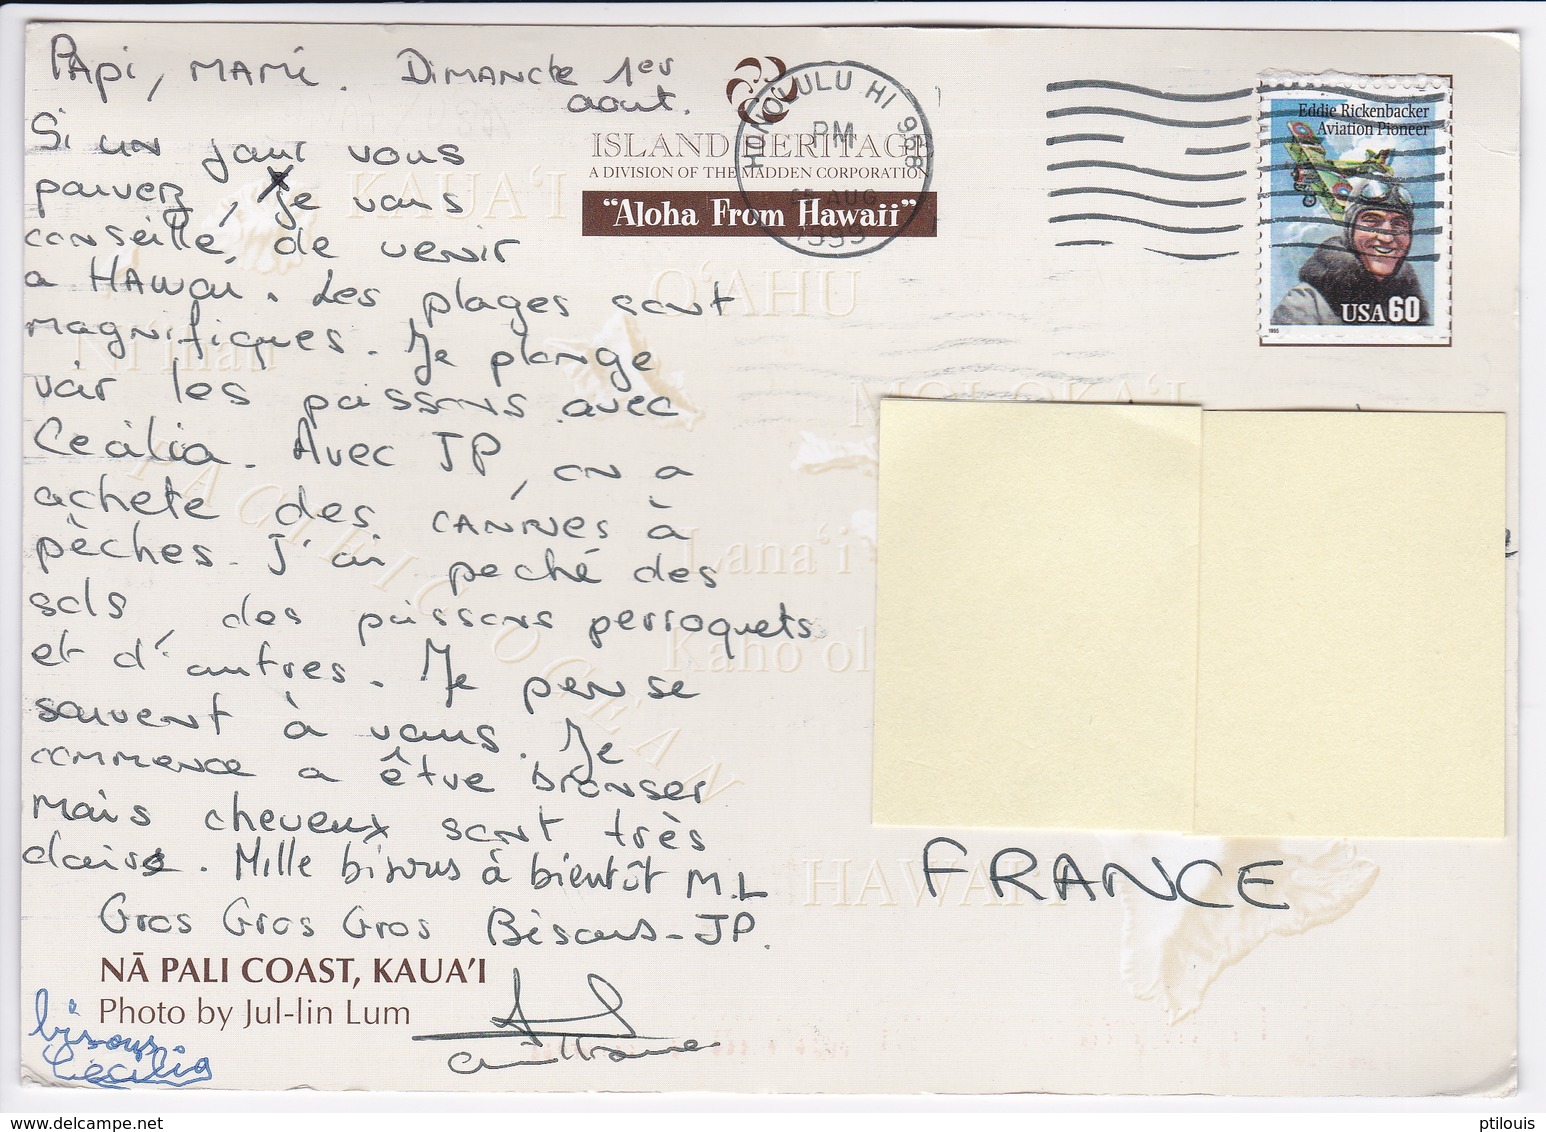 Papi, Mami. Dimanche 1er
aout.
Si un jour vous
pouvez, je vous
conseille, de venir
a Hawaï. Les plages sont
magnifiques. Je plonge
voir les poissons avec
Cecilia. Avec JP, on a
achete des cannes à
pêches. J'ai peché des
sols, des poissons perroquets
et d'autres. Je pense
souvent à vous. Je
commence a être bronser
mais cheveux sont très
clairs. Mille bisous à bientôt M.L
Gros Gros Gros Bisous - JP.
NĀ PALI COAST, KAUA'I
Photo by Jul-lin Lum
bisous
Cécilia
Guillaume
ISLAND HERITAGE
A DIVISION OF THE MADDEN CORPORATION
"Aloha From Hawaii"
HONOLULU HI 968
PM
AUG
1999
Eddie Rickenbacker
Aviation Pioneer
USA 60
1995
KAUA'I
Ni'ihau
O'AHU
MOLOKA'I
Lana'i
Kaho'ol
HAWAI'I
PACIFIC OCEAN
FRANCE
www.delcampe.net
ptilouis